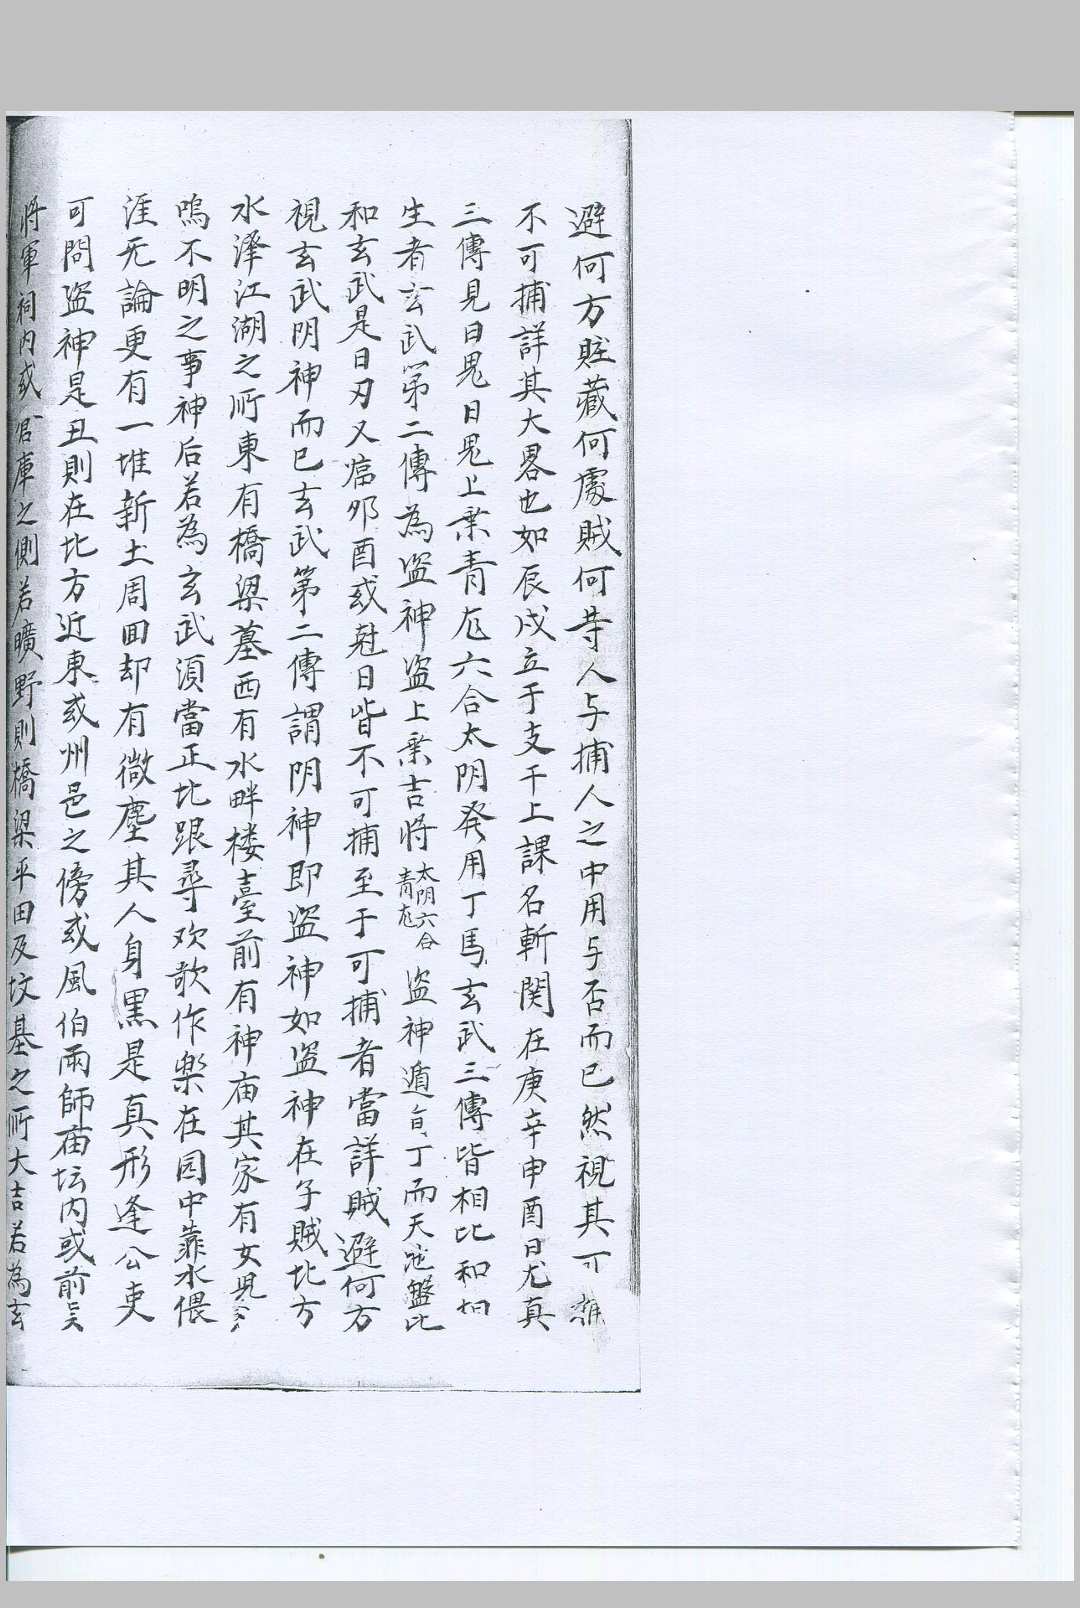 避何方貯藏何處賊何等人与捕人之中用与否而已然視其可
不可捕詳其大畧也如辰戌立于支干上課名斬関在庚辛申酉日尤真
三傳見日鬼日鬼上乗青龙六合太阴発用丁馬玄武三傳皆相比和相
生者玄武第二傳為盗神盗上乗吉将太阴六合青龙盗神遁旬丁而天地盤比
和玄武是日刃又临卯酉或尅日皆不可捕至于可捕者當詳賊避何方
視玄武阴神而已玄武第二傳謂阴神即盗神如盗神在子賊北方
水澤江湖之所東有橋梁墓西有水畔楼臺前有神庙其家有女児
嗚不明之事神后若為玄武須當正北跟尋欢歌作楽在园中靠水偎
涯无論更有一堆新土周回却有微塵其人身黒是真形逢公吏
可問盗神是丑則在北方近東或州邑之傍或風伯雨師庙坛内或前
将軍祠内或倉庫之側若曠野則橋梁平田及坟墓之所大吉若為玄